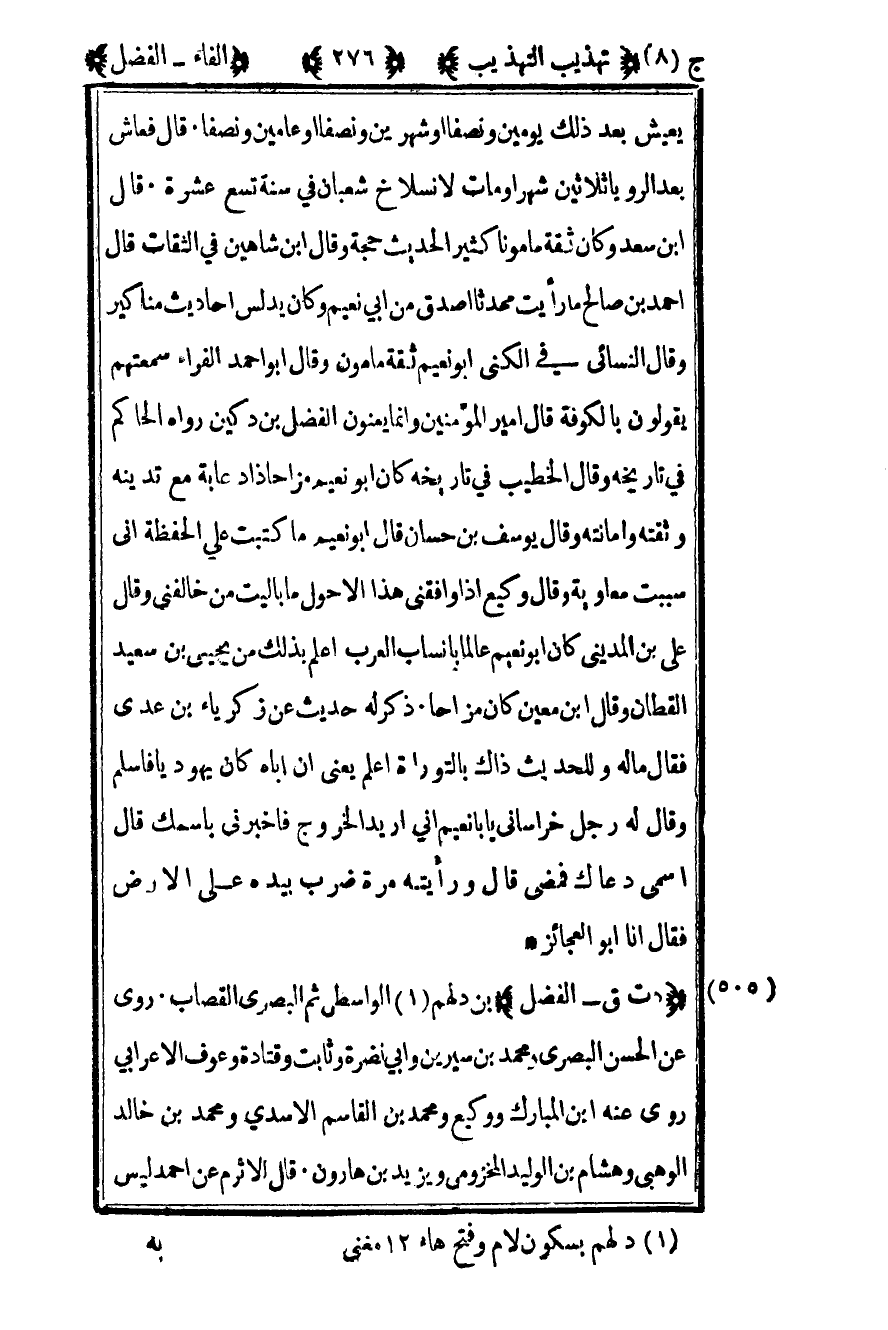 ج (٨) ﴿ تهذيب التهذيب ﴾ ﴿ ٢٧٦ ﴾ ﴿ الفاء ـ الفضل ﴾
يعيش بعد ذلك يومين ونصفا اوشهرين ونصفا اوعامين ونصفا ٠ قال فعاش
بعد الرويا ثلاثين شهرا ومات لانسلاخ شعبان في سنة تسع عشرة ٠ قال
ابن سعد وكان ثقة مامونا كثير الحديث حجة وقال ابن شاهين في الثقات قال
احمد بن صالح ما رأيت محدثا اصدق من ابي نعيم وكان يدلس احاديث مناكير
وقال النسائى في الكنى ابونعيم ثقة مامون وقال ابواحمد الفراء سمعتهم
يقولون بالكوفة قال امير المؤمنين وانما يعنون الفضل بن دكين رواه الحاكم
في تاريخه وقال الخطيب في تاريخه كان ابو نعيم مزاحا ذاد عابة مع تدينه
وثقته وامانته وقال يوسف بن حسان قال ابونعيم ما كتبت علي الحفظة انى
سببت معاوية وقال وكيع اذا وافقنى هذا الاحول ما باليت من خالفني وقال
على بن المدينى كان ابونعيم عالما بانساب العرب اعلم بذلك من يحيى بن سعيد
القطان وقال ابن معين كان مزاحا ٠ ذكر له حديث عن زكرياء بن عدى
فقال ماله وللحديث ذاك بالتوراة اعلم يعنى ان اباه كان يهوديا فاسلم
وقال له رجل خراسانى يا بانعيم اني اريد الخروج فاخبرنى باسمك قال
اسمى دعاك فمضى قال ورأيته مرة ضرب بيده على الارض
فقال انا ابو العجائز *
(٥٠٥) ﴿ ت ق ـ الفضل ﴾ بن دلهم (١) الواسطى ثم البصرى القصاب ٠ روى
عن الحسن البصرى ومحمد بن سيرين وابي نضرة وثابت وقتادة وعوف الاعرابي
روى عنه ابن المبارك ووكيع ومحمد بن القاسم الاسدي ومحمد بن خالد
الوهبى وهشام بن الوليد المخزومى ويزيد بن هارون ٠ قال الاثرم عن احمد ليس
(١) دلهم بسكون لام وفتح هاء ١٢ مغنى
به